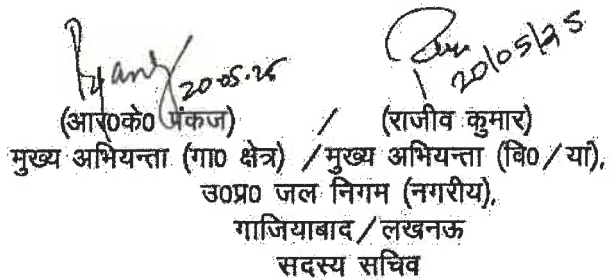 20.05.25 20/05/25
(आर0के0 पंकज) / (राजीव कुमार)
मुख्य अभियन्ता (गा0 क्षेत्र) / मुख्य अभियन्ता (वि0/यां),
उ0प्र0 जल निगम (नगरीय),
गाजियाबाद/लखनऊ
सदस्य सचिव